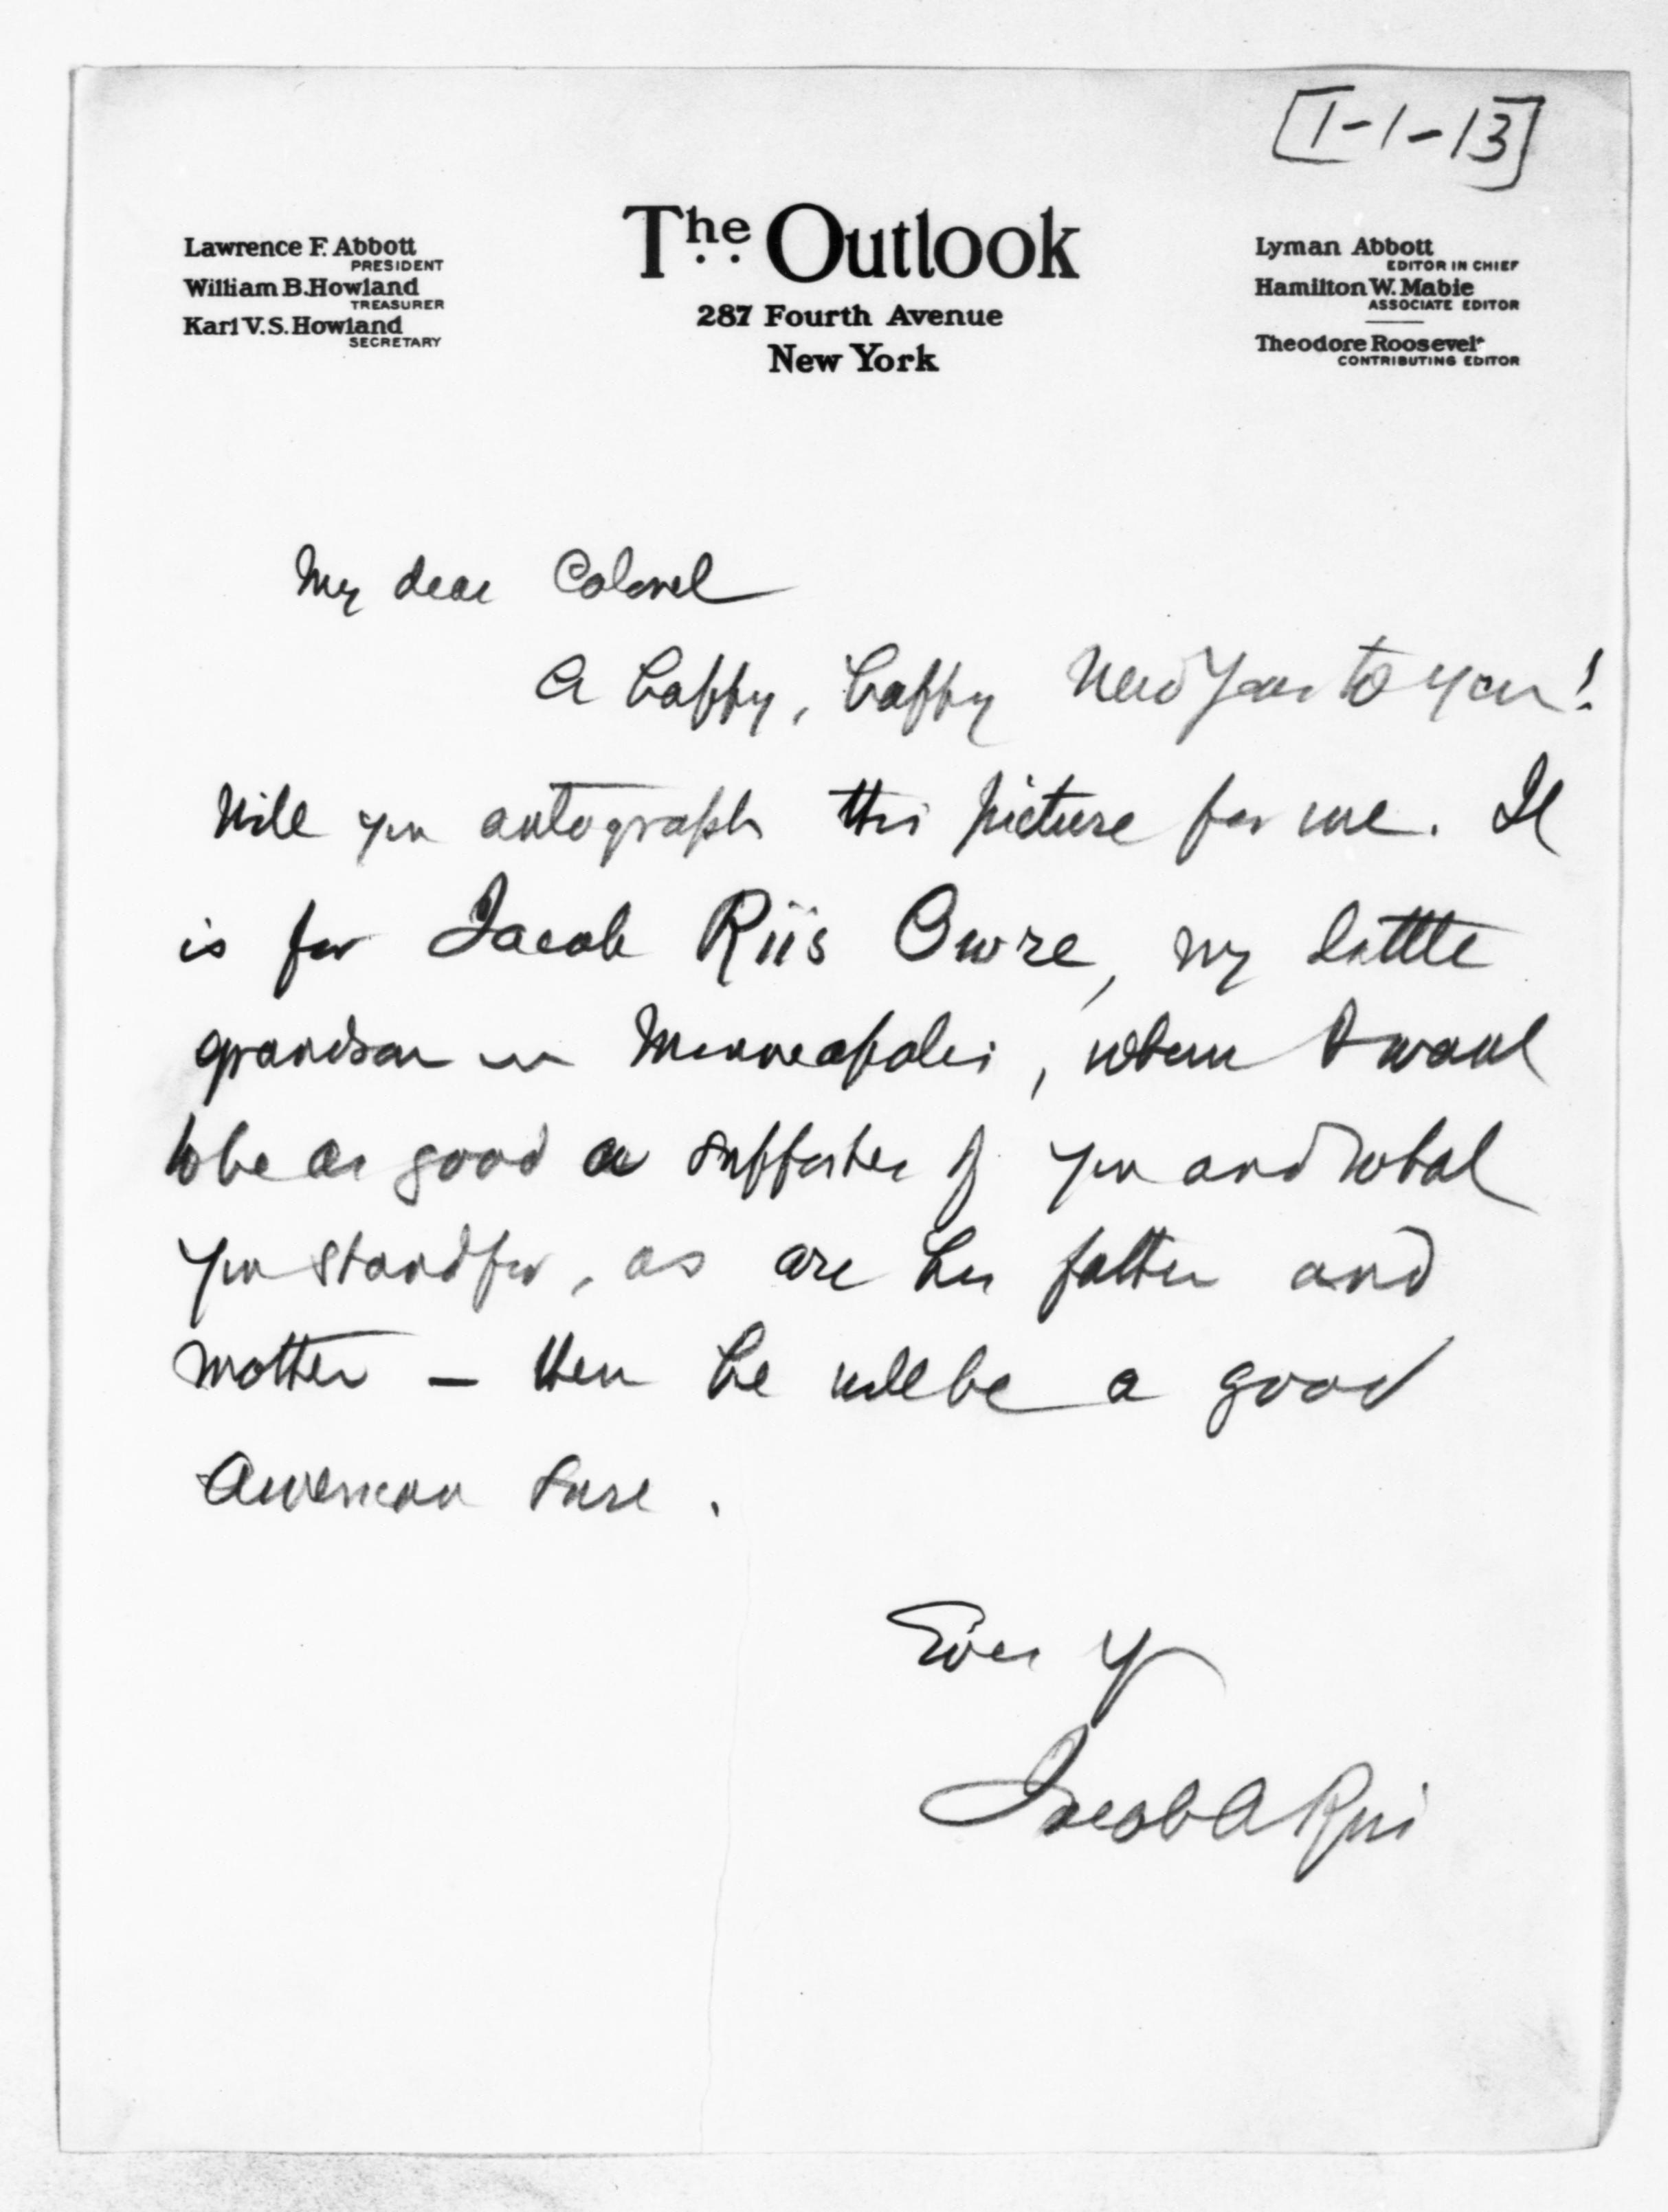 [1-1-13]
The Outlook
287 Fourth Avenue
New York
Lawrence F. Abbott
PRESIDENT
William B. Howland
TREASURER
Karl V. S. Howland
SECRETARY
Lyman Abbott
EDITOR IN CHIEF
Hamilton W. Mabie
ASSOCIATE EDITOR
Theodore Roosevelt
CONTRIBUTING EDITOR
My dear Colonel
A happy, happy New Year to you!
Will you autograph this picture for me. It
is for Jacob Riis Owre, my little
grandson in Minneapolis, whom I want
to be as good a supporter of you and what
you stand for, as are his father and
mother — then he will be a good
American sure.
Ever yr
Jacob A Riis